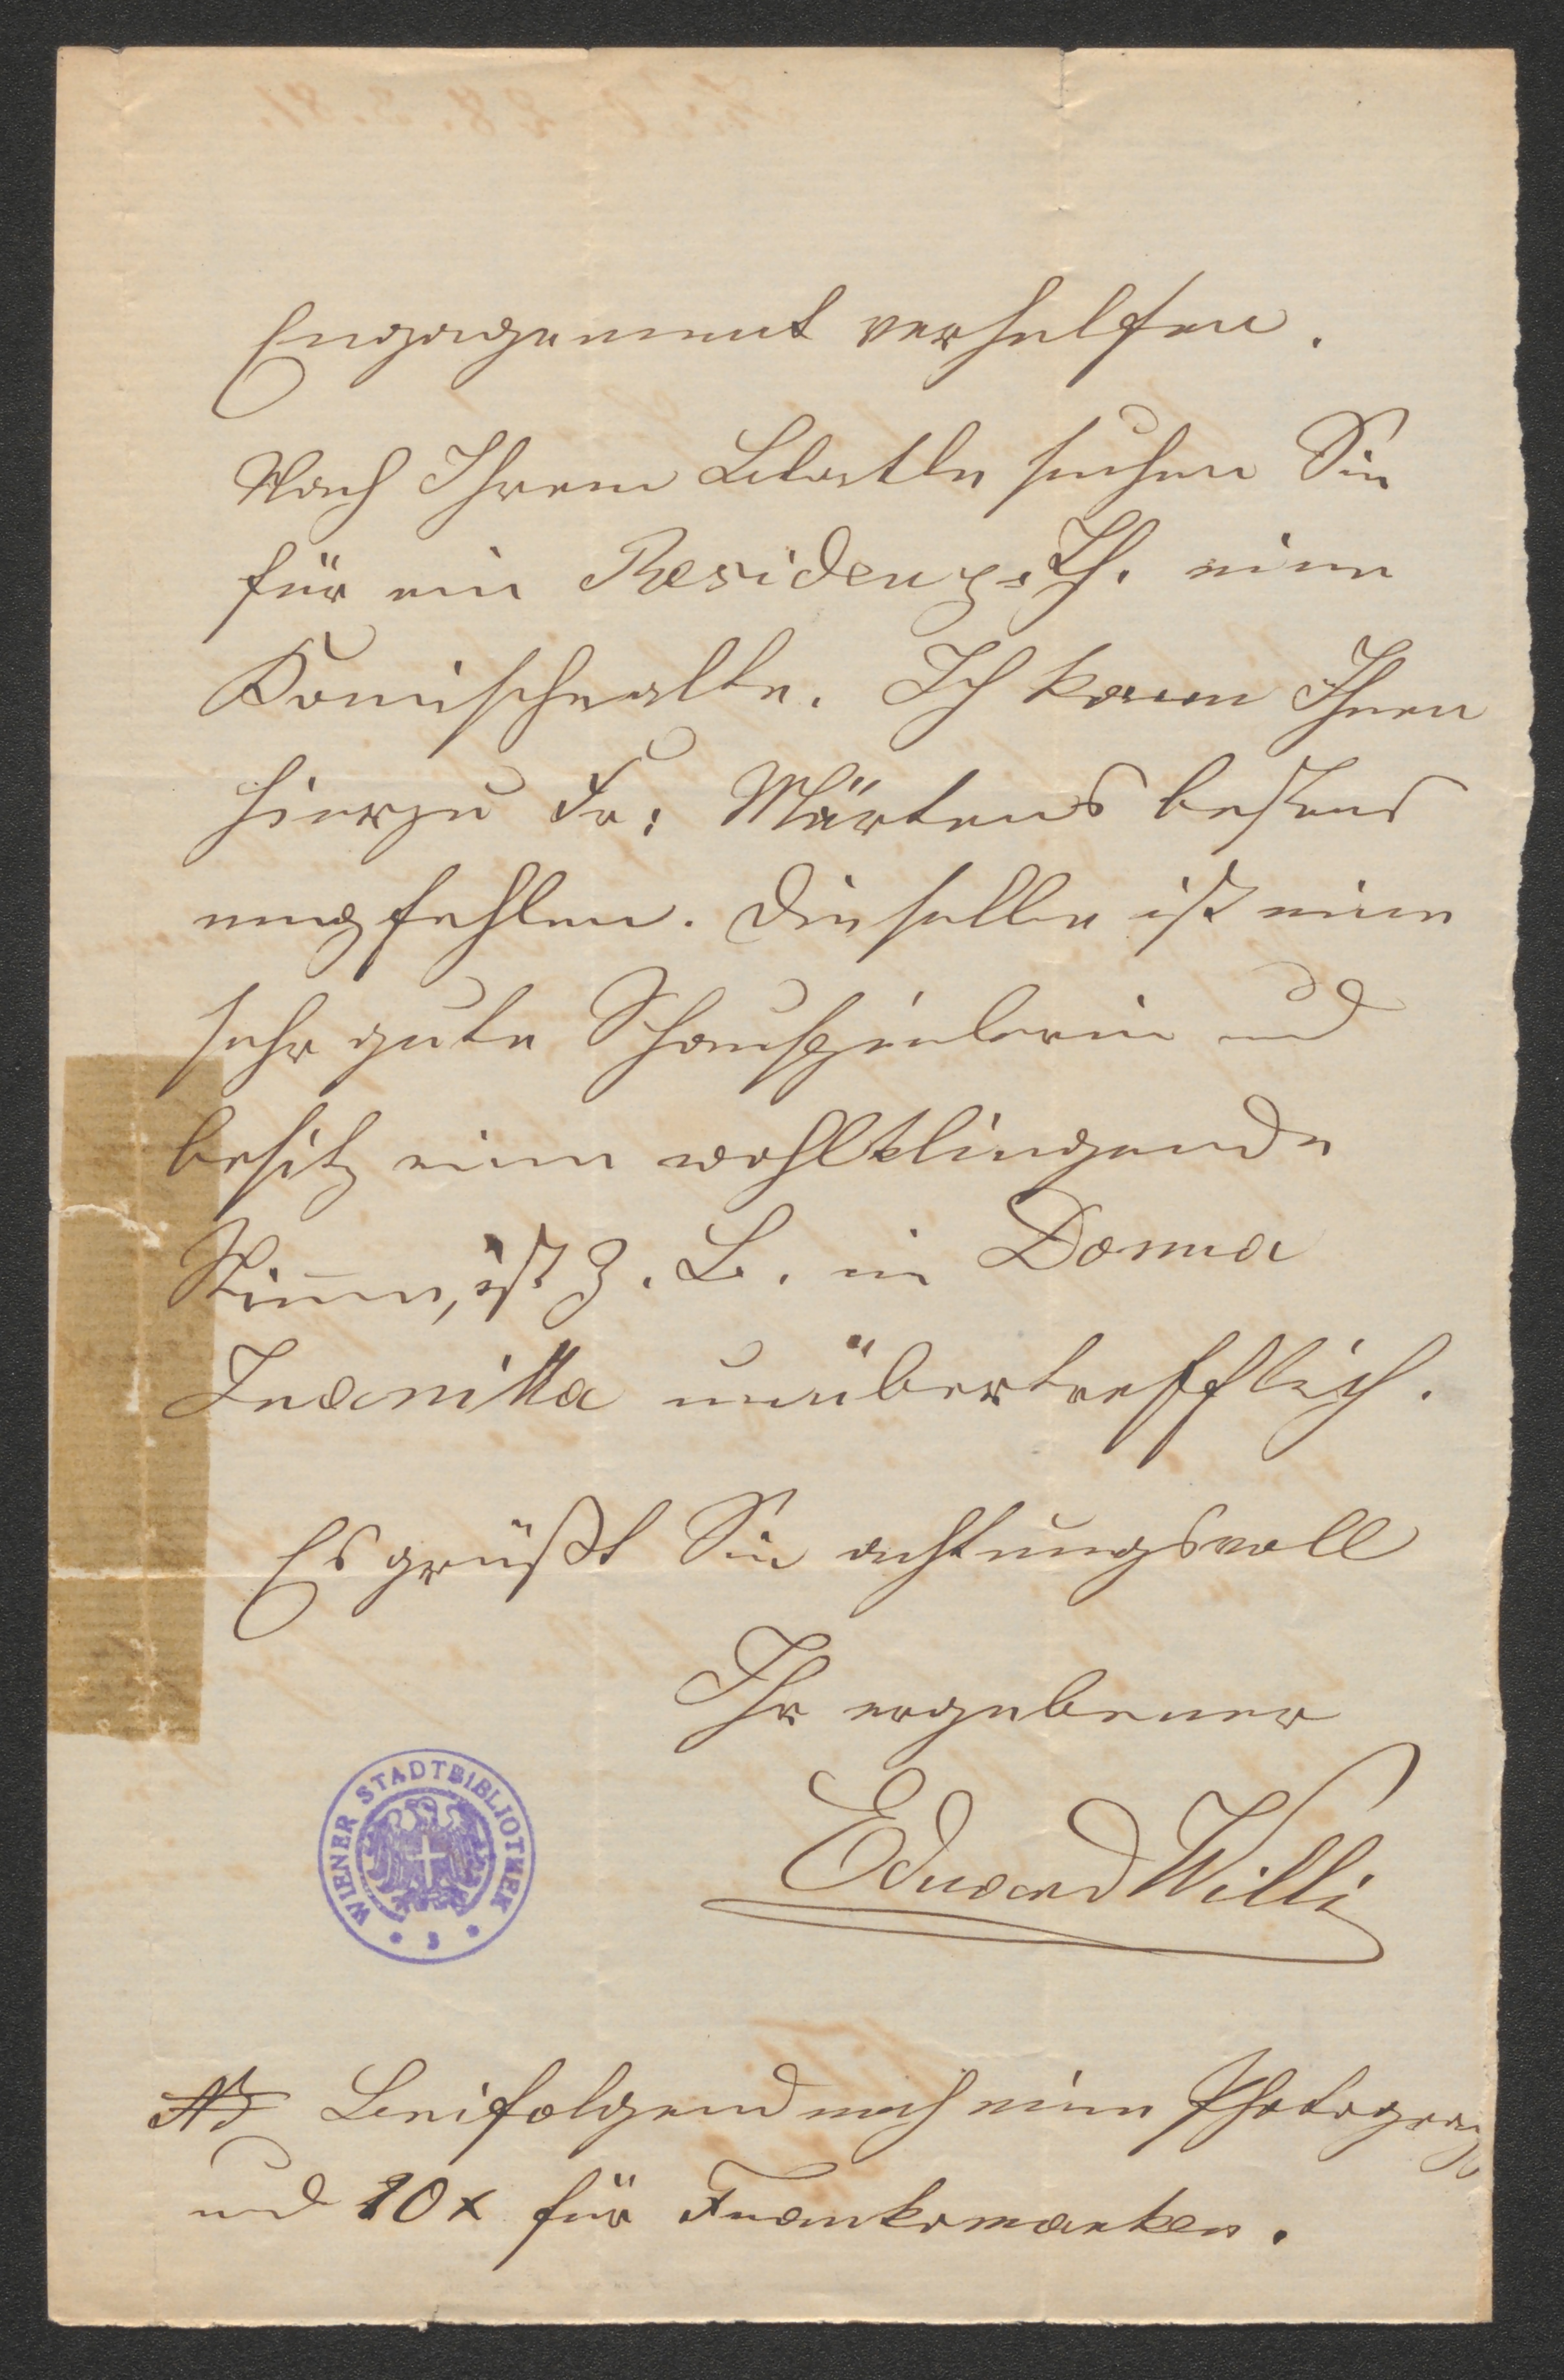 Engagement verhelfen.
Nach Ihrem Blatte suchen Sie
für ein Residenz=Th. eine
Komischealte. Ich kann Ihnen
hierzu Fr: Märtens bestens
empfehlen. Dieselbe ist eine
sehr gute Schauspielerin und
besitz eine wohlklingende
Stim̅e, ist z. B. in Donna
Juanitta unübertrefflich.
Es grüßt Sie achtungsvoll
Ihr ergebener
Eduard Willi
WIENER STADTBIBLIOTHEK
NB Beifolgend noch eine Photogra
und 10 x für Frankomarken.